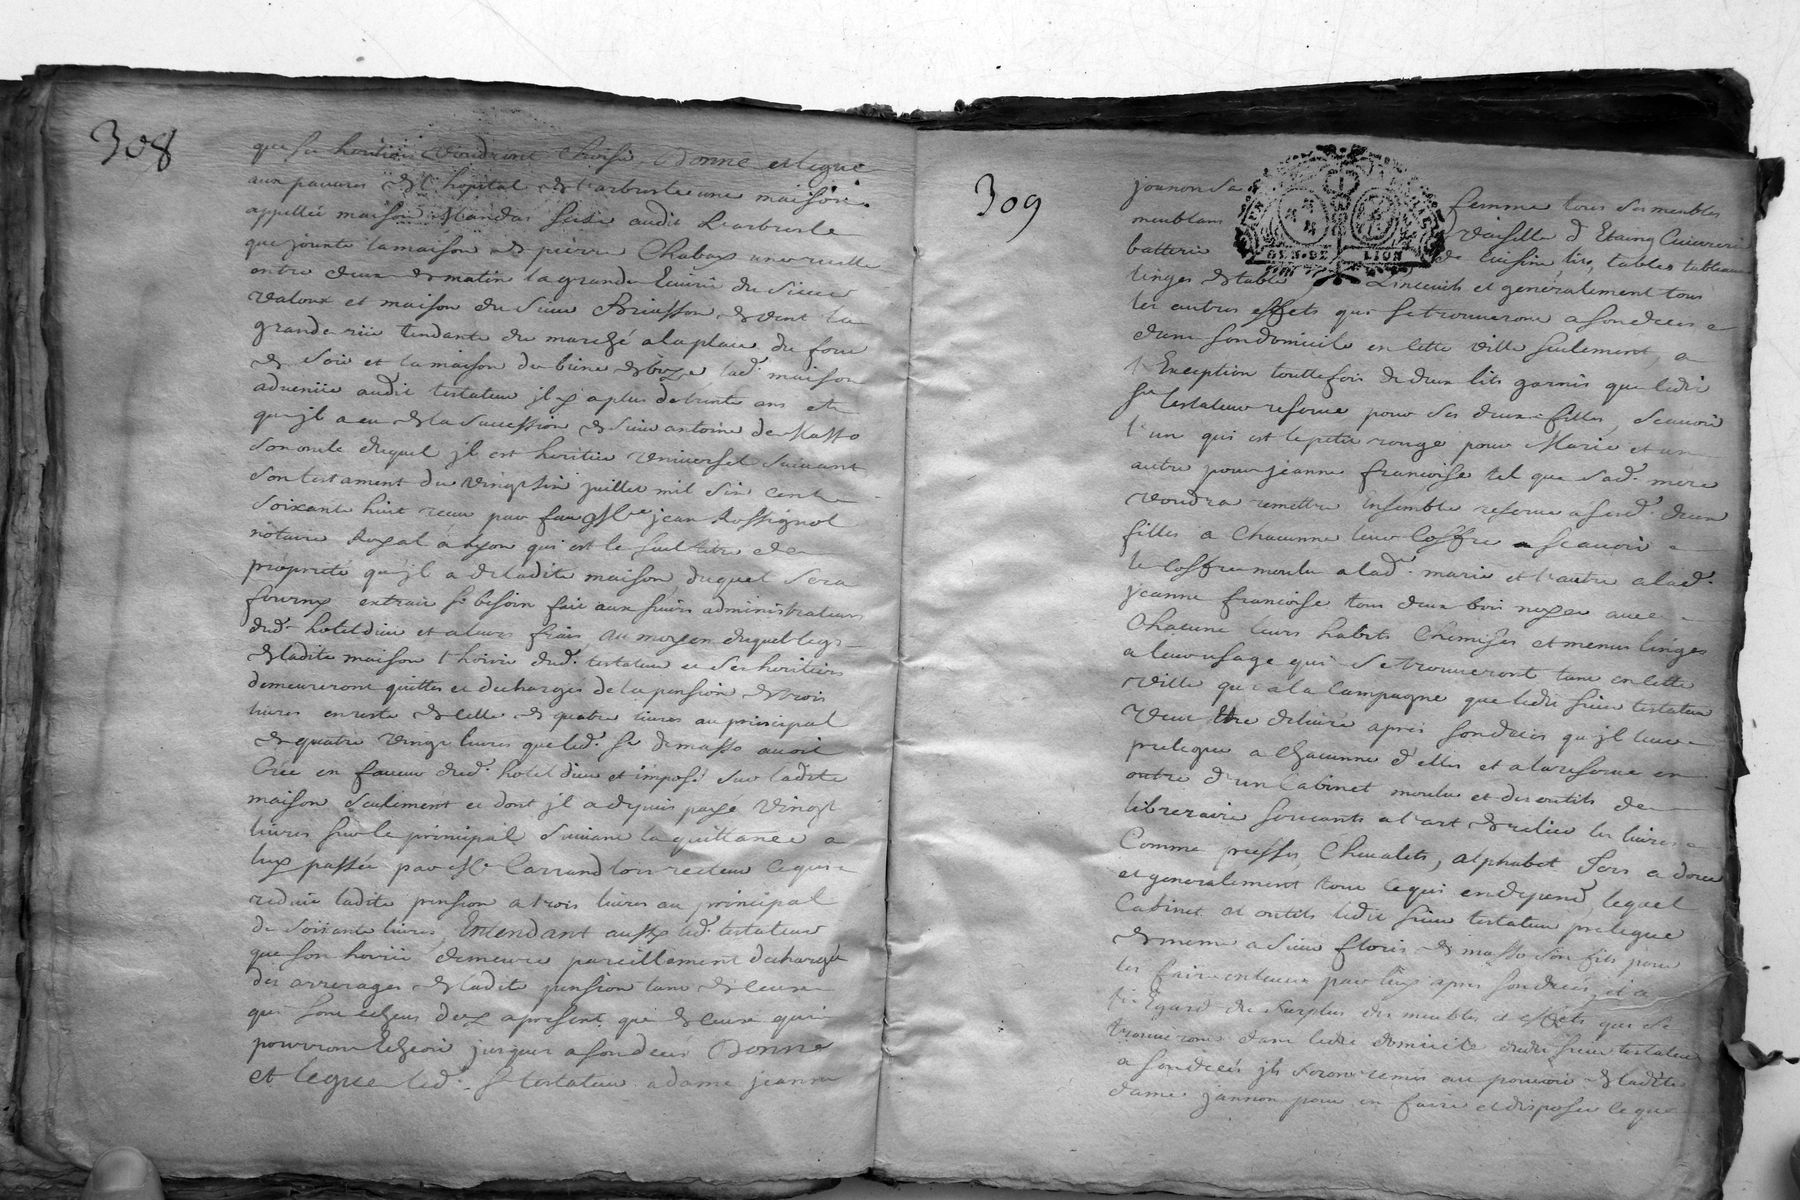 308
que ses heritiers voudront choisir, Donne et legue
aux pauvres de l'hopital de larbresle une maison
appellée maison Mandar scize audit Larbresle
que jouxte la maison de pierre Chabas une ruelle
entre deux de matin la grande Ecurie du sieur
Valoux et maison du sieur Briasson de vent la
grande rüe tendante du marché a la place du four
de soir et la maison du de bize lad. maison
advenüe audit testateur jl y a plus de trente ans et
qu'jl a eu de la succession de sieur antoine de Masso
son oncle duquel jl est heritier universel suivant
son testament du vingt six juillet mil six cent
soixante huit receu par feu Me jean Rossignol
notaire Royal á Lyon qui est le seul titre de
proprieté qu'jl a de ladite maison duquel sera
fourny extrait si besoin fait aux sieurs administrateurs
dud. hotel dieu et a leurs frais au moyen duquel legs
de ladite maison l'hoirie dud. testateur et ses heritiers
demeureront quittes et decharges de la pension de trois
livres en reste de celle de quatre livres au principal
de quatre vingt livres que led. sr demasso avoit
Créé en faveur dud. hotel dieu et imposé sur ladite
maison seulement et dont jl a depuis payé vingt
livres sur le principal suivant la quittance a
luy passée par Me Carrand lors recteur ce qui
reduit ladite pension a trois livres au principal
de soixante livres, Entendant aussy led. testateur
que son hoirie demeure pareillement dechargé
des arrerages de ladite pension tant de ceux
qui sont echeus de a present que de ceux qui
pourront Echeoir jusques a son deces Donne
et legue led. sr testateur a dame jeanne
309
joannon sa femme tous ses meubles
meublans vaiselle d'Etaing Cuivrerie
batterie de Cuisine lits, tables tableaux
linges de table Linceuils et generalement tous
les autres effets qui se trouveront a son deces
dans son domicile en cette ville seulement, a
l'Exception touttefois de deux lits garnis que ledit
sr testateur reserve pour ses deux filles, scauoir
l'un qui est le petit rouge pour Marie et un
autre pour jeanne francoise tel que sad. mere
voudra remettre Ensemble reserve a sesd. deux
filles a Chacunne leur Coffre scauoir
le Coffre moulu a lad. marie et l'autre a lad.
jeanne francoise tous deux bois noyer avec
Chacune leurs habits Chemises et menus linges
a leur usage qui se trouveront tant en cette
ville qu'a la Campagne que ledit sieur testateur
veut Etre delivré apres son deces qu'jl leur
prelegue a Chacunne d'elles et a la reserve en
outre d'un Cabinet moulu et des outils de
libreraire servants a l'art de relier les livres
Comme presses, Chevalets, alphabet fers a dorer
et generalement tout ce qui en depend, lequel
Cabinet et outils ledit sieur testateur prelegue
de meme a sieur floris de masso son fils pour
les faire entrer par luy apres son deces, et a
l'Egard du surplus des meubles et effets qui se
trouveront dans ledit domicile dudit sieur testateur
a son deces jls seront remis au pouvoir de ladite
dame jannon pour en faire et disposer ce que
GEN. DE LION